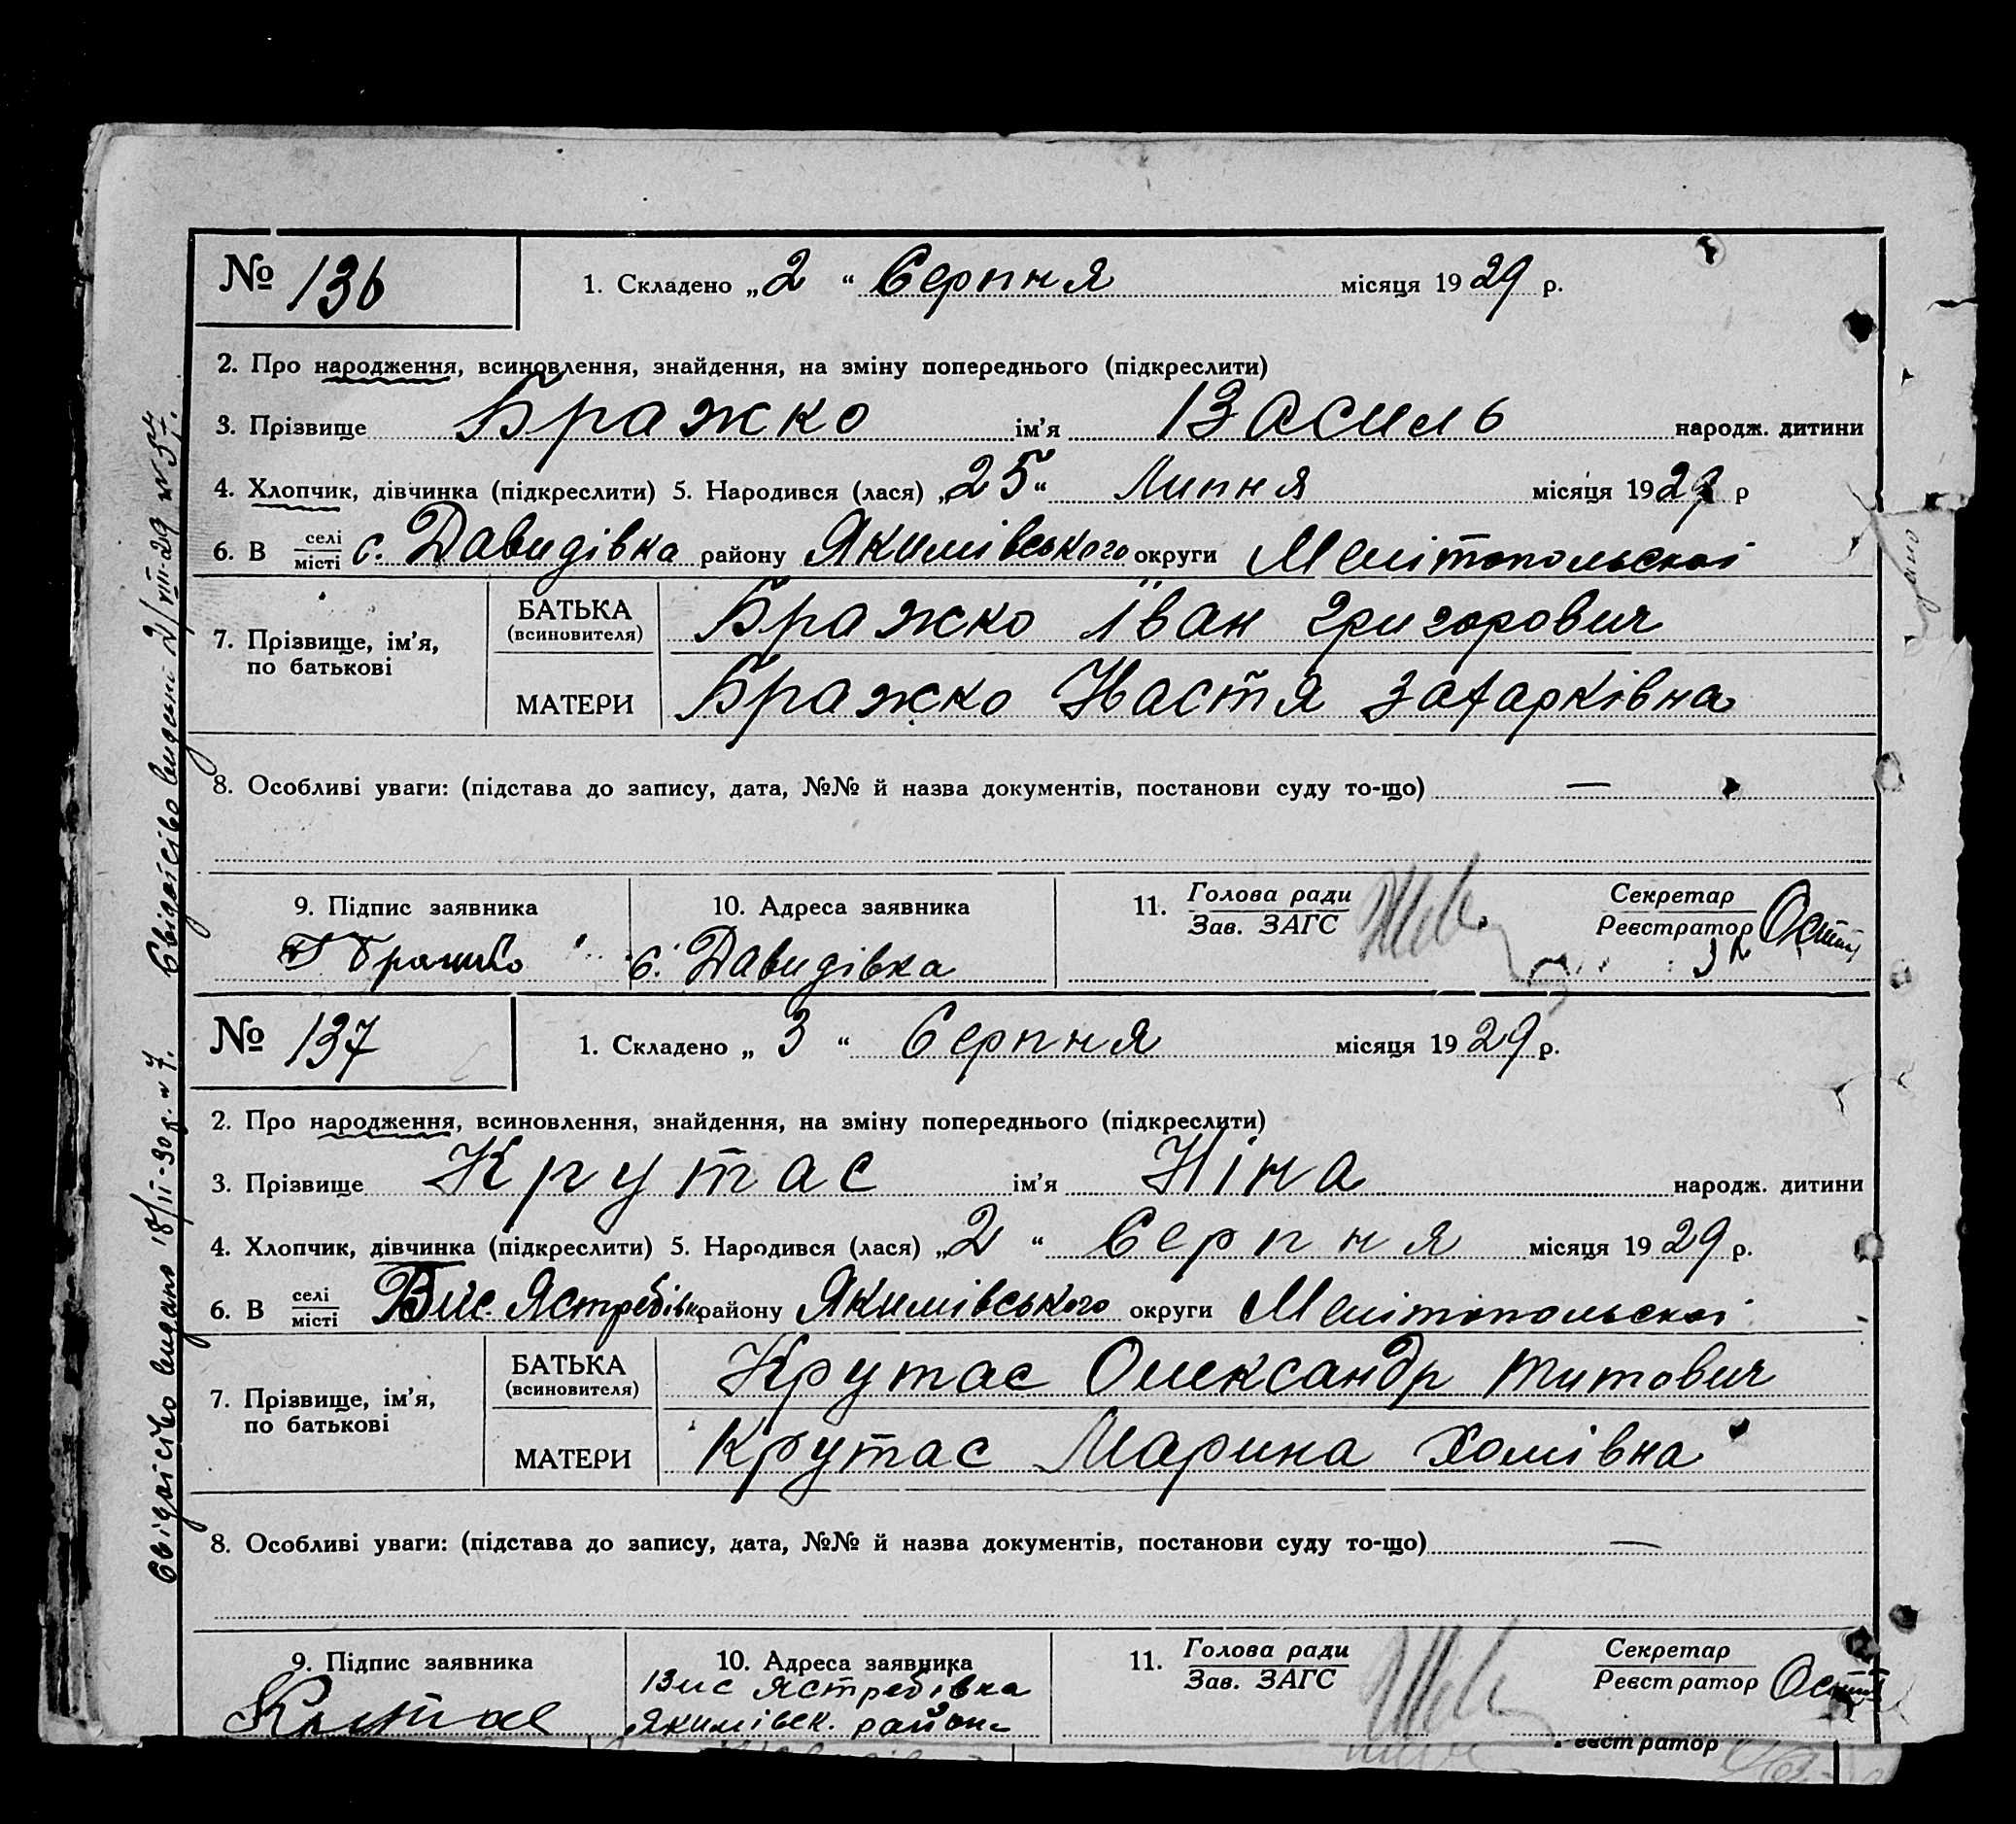 № 136
1. Складено „2“ Серпня місяця 1929 р.
2. Про народження, всиновлення, знайдення, на зміну попереднього (підкреслити)
3. Прізвище Бражко ім'я Василь народж. дитини
4. Хлопчик, дівчинка (підкреслити) 5. Народився (лася) „25“ Липня місяця 1929 р
6. В селі/місті с. Давидівка району Якимівського округи Мелітопольскої
7. Прізвище, ім'я, по батькові
БАТЬКА (всиновителя) Бражко Іван Григорович
МАТЕРИ Бражко Настя Захарківна
8. Особливі уваги: (підстава до запису, дата, №№ й назва документів, постанови суду то-що) —
9. Підпис заявника
Бражко
10. Адреса заявника
с. Давидівка
11. Голова ради
Зав. ЗАГС
Секретар
Реєстратор
Свідоцтво видані 2/VIII-29
№ 137
1. Складено „3“ Серпня місяця 1929 р.
2. Про народження, всиновлення, знайдення, на зміну попереднього (підкреслити)
3. Прізвище Крутас ім'я Ніна народж. дитини
4. Хлопчик, дівчинка (підкреслити) 5. Народився (лася) „2“ Серпня місяця 1929 р.
6. В селі/місті Вис. Ястребівк району Якимівського округи Мелітопольскої
7. Прізвище, ім'я, по батькові
БАТЬКА (всиновителя) Крутас Олександр Титович
МАТЕРИ Крутас Марина Хомівна
8. Особливі уваги: (підстава до запису, дата, №№ й назва документів, постанови суду то-що) —
9. Підпис заявника
Крутас
10. Адреса заявника
Вис Ястребівка
Якимівск. район
11. Голова ради
Зав. ЗАГС
Секретар
Реєстратор
Свідоцтво видано 18/II-30 р. № 7.
Реєстратор